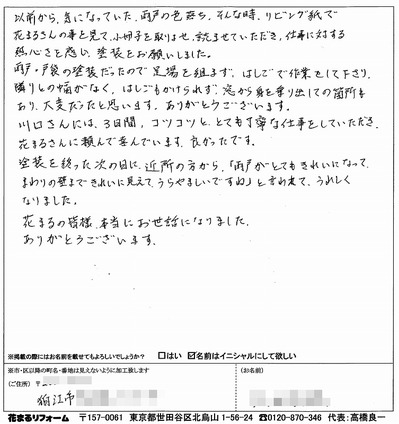 以前から、気になっていた、雨戸の色落ち、そんな時、リビング紙で
花まるさんの事を見て、小冊子を取りよせ、読ませていただき、仕事に対する
熱心さを感じ、塗装をお願いしました。
雨戸・戸袋の塗装だったので足場を組まず、はしごで作業をして下さり、
隣りとの幅がなく、はしごもかけられず、窓から身を乗り出しての箇所も
あり、大変だったと思います。ありがとうございます。
川口さんには、3日間、コツコツと、とても丁寧な仕事をしていただき、
花まるさんに頼んで喜んでいます。良かったです。
塗装を終った次の日に、近所の方から、「雨戸がとてもきれいになって、
まわりの壁まできれいに見えて、うらやましいですね」と言われて、うれしく
なりました。
花まるの皆様、本当にお世話になりました。
ありがとうございます。
※掲載の際にはお名前を載せてもよろしいでしょうか? □はい ☑名前はイニシャルにして欲しい
※市・区以降の町名・番地は見えないように加工致します
(ご住所) 〒
(お名前)
狛江市
花まるリフォーム 〒157-0061 東京都世田谷区北烏山1-56-24 ☎0120-870-346 代表:高橋良一